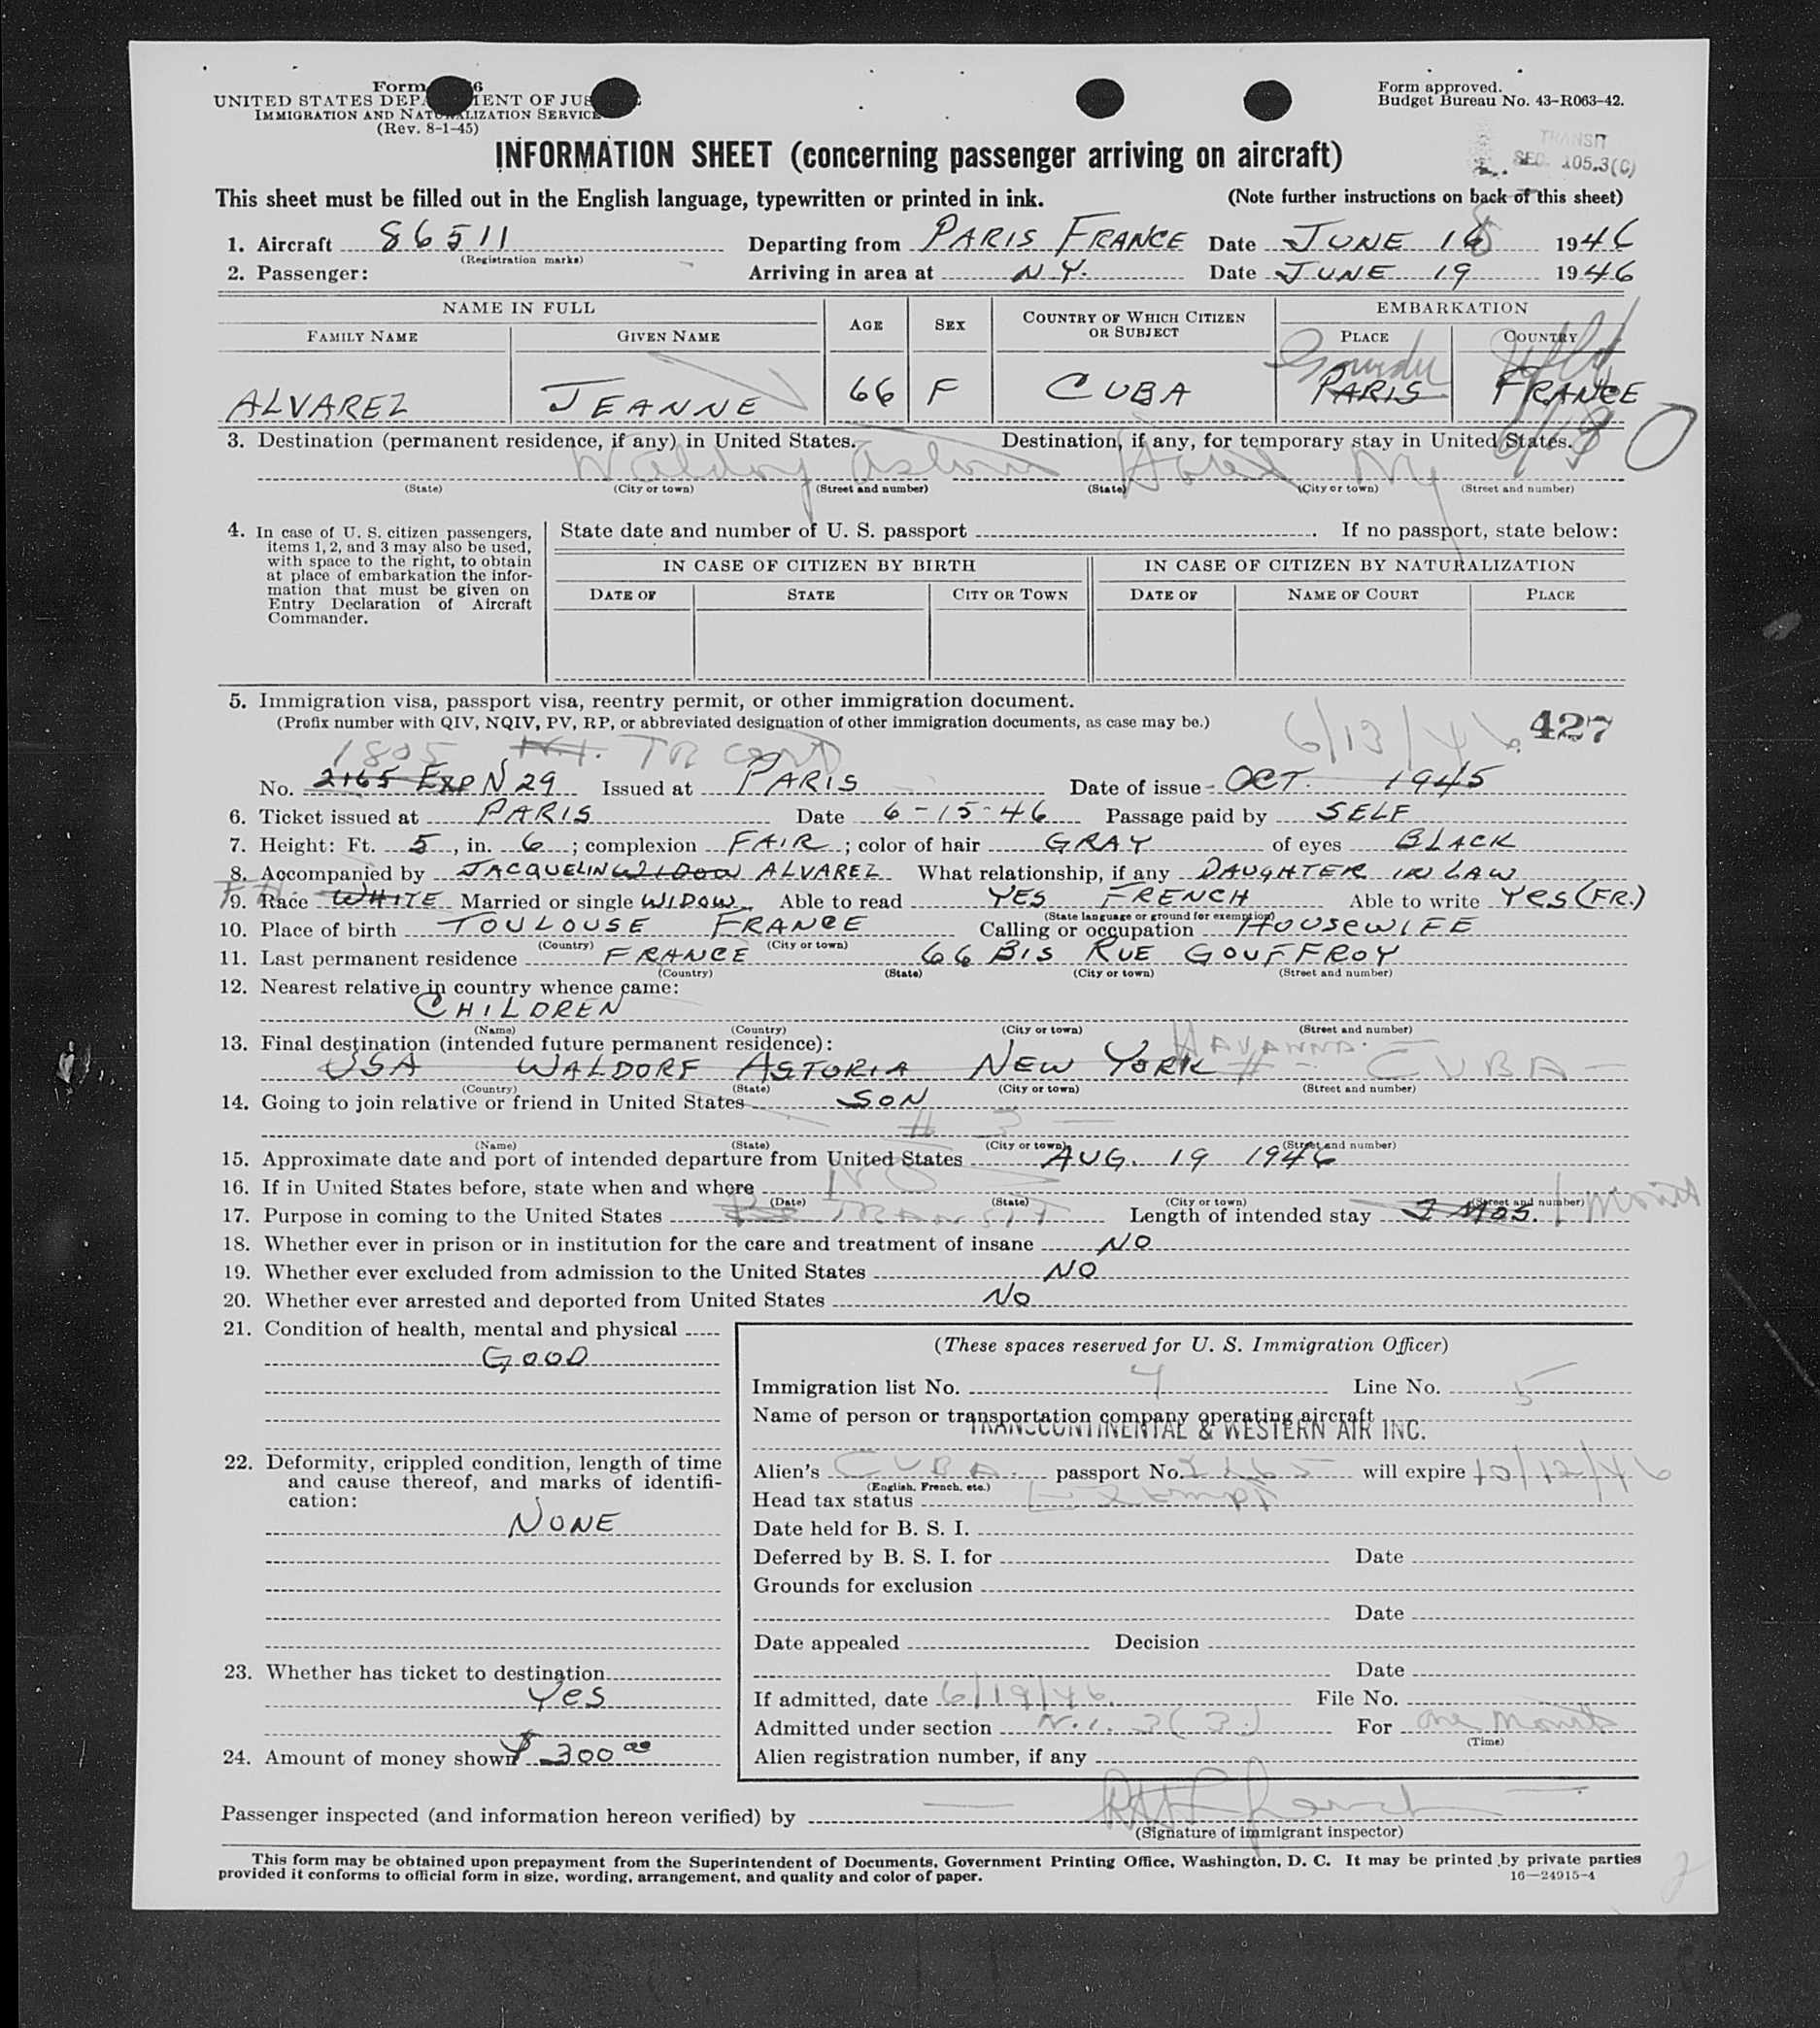 Form 6
UNITED STATES DEPARTMENT OF JUS
IMMIGRATION AND NATURALIZATION SERVICE
(Rev. 8-1-45)
Form approved.
Budget Bureau No. 43-R063-42.
TRANSIT
SEC. 105.3(C)
INFORMATION SHEET (concerning passenger arriving on aircraft)
This sheet must be filled out in the English language, typewritten or printed in ink. (Note further instructions on back of this sheet)
1. Aircraft 86511 Departing from PARIS FRANCE Date JUNE 18 1946
(Registration marks)
2. Passenger: Arriving in area at N.Y. Date JUNE 19 1946
NAME IN FULL AGE SEX COUNTRY OF WHICH CITIZEN OR SUBJECT EMBARKATION
FAMILY NAME GIVEN NAME PLACE COUNTRY
ALVAREZ JEANNE 66 F CUBA PARIS FRANCE
3. Destination (permanent residence, if any) in United States. Destination, if any, for temporary stay in United States.
Waldorf Astoria Hotel NY
(State) (City or town) (Street and number) (State) (City or town) (Street and number)
4. In case of U. S. citizen passengers, items 1, 2, and 3 may also be used, with space to the right, to obtain at place of embarkation the information that must be given on Entry Declaration of Aircraft Commander.
State date and number of U. S. passport . If no passport, state below:
IN CASE OF CITIZEN BY BIRTH IN CASE OF CITIZEN BY NATURALIZATION
DATE OF STATE CITY OR TOWN DATE OF NAME OF COURT PLACE
5. Immigration visa, passport visa, reentry permit, or other immigration document.
(Prefix number with QIV, NQIV, PV, RP, or abbreviated designation of other immigration documents, as case may be.)
6/13/46 427
1805 TR cert
No. 2165 EXP N 29 Issued at PARIS Date of issue OCT. 1945
6. Ticket issued at PARIS Date 6-15-46 Passage paid by SELF
7. Height: Ft. 5, in. 6; complexion FAIR; color of hair GRAY of eyes BLACK
8. Accompanied by JACQUELIN WIDOW ALVAREZ What relationship, if any DAUGHTER IN LAW
9. Race WHITE Married or single WIDOW Able to read YES FRENCH Able to write YES (FR.)
(State language or ground for exemption)
10. Place of birth TOULOUSE FRANCE Calling or occupation HOUSEWIFE
(Country) (City or town)
11. Last permanent residence FRANCE 66 BIS RUE GOUFFROY
(Country) (State) (City or town) (Street and number)
12. Nearest relative in country whence came:
CHILDREN
(Name) (Country) (City or town) (Street and number)
13. Final destination (intended future permanent residence): HAVANNA
USA WALDORF ASTORIA NEW YORK CUBA
(Country) (State) (City or town) (Street and number)
14. Going to join relative or friend in United States SON
# 3
(Name) (State) (City or town) (Street and number)
15. Approximate date and port of intended departure from United States AUG. 19 1946
16. If in United States before, state when and where NO
(Date) (State) (City or town) (Street and number)
17. Purpose in coming to the United States TRANSIT Length of intended stay 2 MOS. 1 Month
18. Whether ever in prison or in institution for the care and treatment of insane NO
19. Whether ever excluded from admission to the United States NO
20. Whether ever arrested and deported from United States NO
21. Condition of health, mental and physical
GOOD
22. Deformity, crippled condition, length of time and cause thereof, and marks of identification:
NONE
23. Whether has ticket to destination
Yes
24. Amount of money shown $ 300.00
(These spaces reserved for U. S. Immigration Officer)
Immigration list No. 4 Line No. 5
Name of person or transportation company operating aircraft
TRANSCONTINENTAL & WESTERN AIR INC.
Alien's CUBA passport No. 2165 will expire 10/12/46
(English, French, etc.)
Head tax status Exempt
Date held for B. S. I.
Deferred by B. S. I. for Date
Grounds for exclusion
Date
Date appealed Decision
Date
If admitted, date 6/19/46 File No.
Admitted under section N.I. 3(3) For one Month
(Time)
Alien registration number, if any
Passenger inspected (and information hereon verified) by
(Signature of immigrant inspector)
This form may be obtained upon prepayment from the Superintendent of Documents, Government Printing Office, Washington, D. C. It may be printed by private parties
provided it conforms to official form in size, wording, arrangement, and quality and color of paper. 16—24915-4